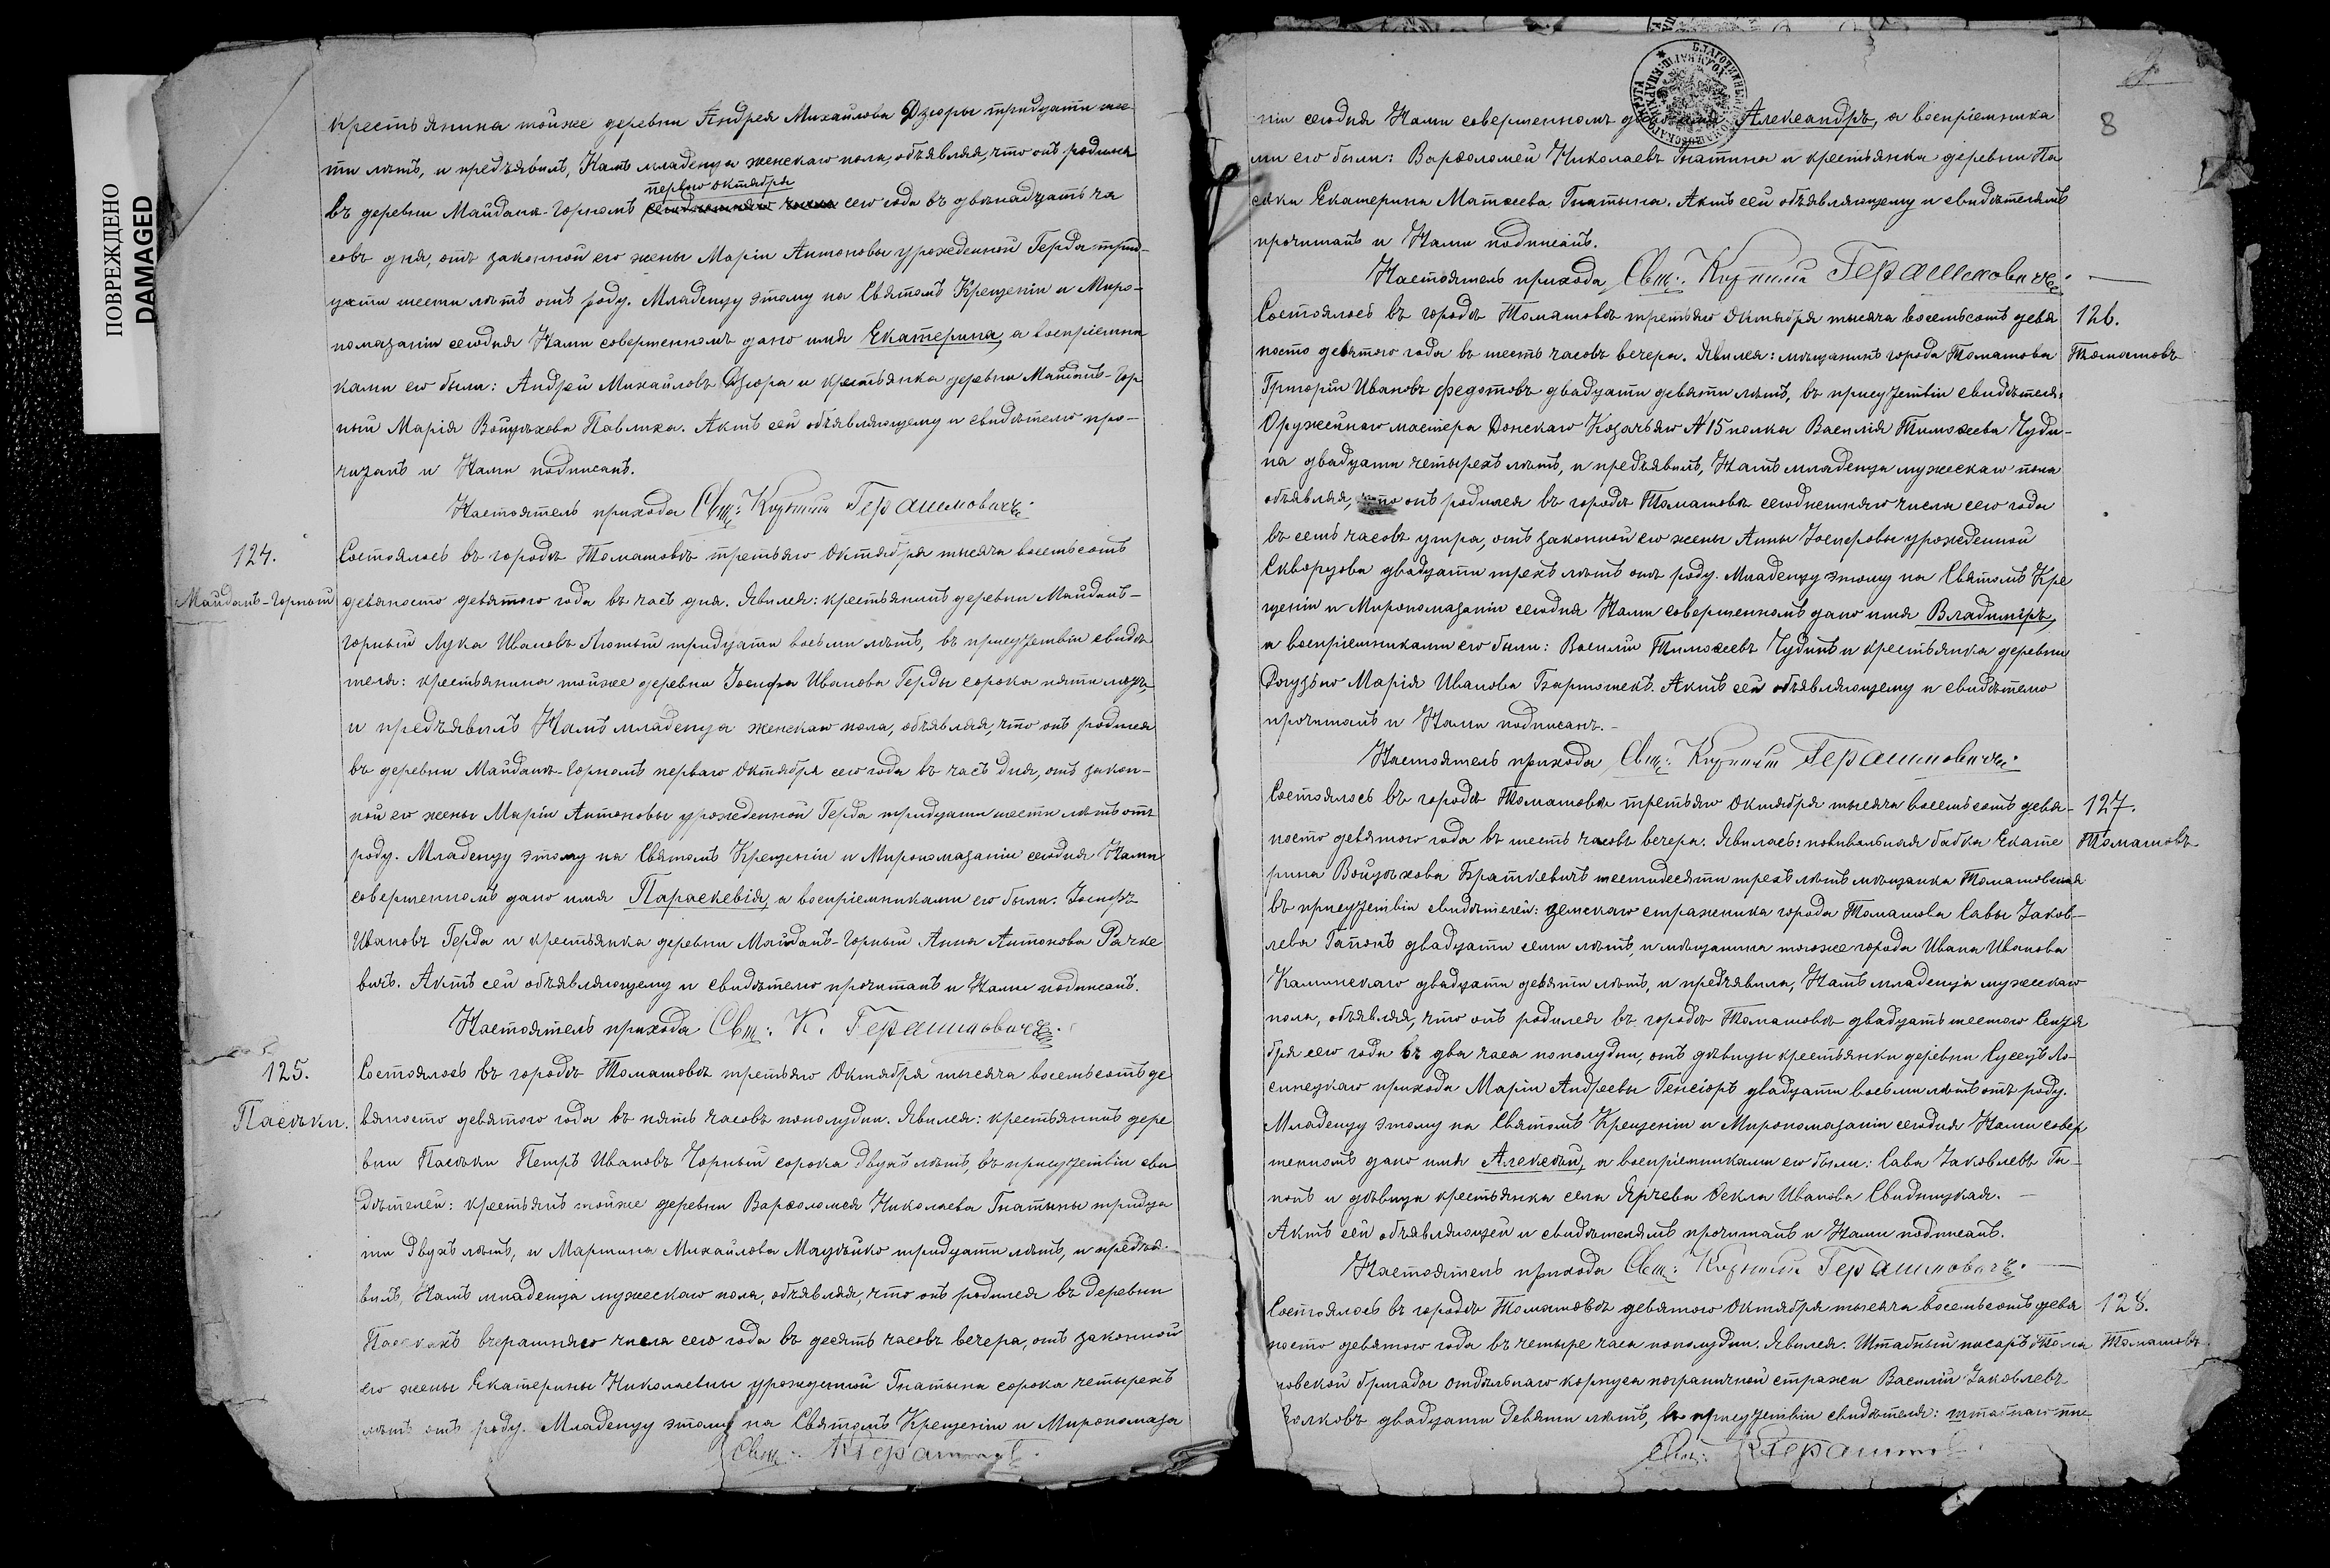 ПОВРЕЖДЕНО
DAMAGED
крестьянина тойже деревни Андрея Михайлова Дзюры тридцати шес
ти лѣтъ, и предъявилъ, Намъ младенца женскаго пола, объявляя, что онъ родился
перваго Октября
въ деревни Майданъ-Горномъ сегоднешняго числа сего года въ двѣнадцать ча
совъ дня, отъ законной его жены Маріи Антоновы урожденной Герда трид-
цати шести лѣтъ отъ роду. Младенцу этому на Святомъ Крещеніи и Миро-
помазаніи сегодня Нами совершенномъ дано имя Екатерина, а воспріемни-
ками его были: Андрей Михайловъ Дзюра и крестьянка деревни Майданъ-Гор
ный Марія Войцѣхова Павлиха. Актъ сей объявляющему и свидѣтелю про-
читанъ и Нами подписанъ.
Настоятель прихода Свщ: Герасимовичъ.
124.
Майданъ-Горный
Состоялось въ городѣ Томашовѣ третьяго Октября тысяча восемьсотъ
девяносто девятого года въ часъ дня. Явился: крестьянинъ деревни Майданъ-
Горный Лука Ивановъ Лютый тридцати восьми лѣтъ, въ присутствіи свидѣ
теля: крестьянина тойже деревни Іосифа Иванова Герды сорока пяти лѣтъ,
и предъявилъ Намъ младенца женскаго пола, объявляя, что онъ родился
въ деревни Майданъ-Горномъ перваго Октября сего года въ часъ дня, отъ закон-
ной его жены Маріи Антоновы урожденной Герда тридцати шести лѣтъ отъ
роду. Младенцу этому на Святомъ Крещеніи и Миропомазаніи сегодня Нами
совершенномъ дано имя Параскевія, а воспріемниками его были: Іосифъ
Ивановъ Герда и крестьянка деревни Майданъ-Горный Анна Антонова Рачке
вичъ. Актъ сей объявляющему и свидѣтелю прочитанъ и Нами подписанъ.
Настоятель прихода Свщ: К. Герасимовичъ.
125.
Пасѣки.
Состоялось въ городѣ Томашовѣ третьяго Октября тысяча восемьсотъ де
вяносто девятого года въ пять часовъ пополудни. Явился: крестьянинъ дере
вни Пасѣки Петръ Ивановъ Чорный сорока двухъ лѣтъ, въ присутствіи сви
дѣтелей: крестьянъ тойже деревни Варѳоломея Николаева Гнатыны тридца
ти двухъ лѣтъ, и Мартина Михайлова Мацѣйко тридцати лѣтъ, и предъя-
вилъ, Намъ младенца мужескаго пола, объявляя, что онъ родился въ деревни
Пасѣкахъ вчерашняго числа сего года въ десять часовъ вечера, отъ законной
его жены Екатерины Николаевны урожденной Гнатына сорока четырехъ
лѣтъ отъ роду. Младенцу этому на Святомъ Крещеніи и Миропомаза
Свщ: КГерасимов
8
ніи сегодня Нами совершенномъ Александръ, а воспріемника
ми его были: Варѳоломей Николаевъ Гнатына и крестьянка деревни Па
сѣки Екатерина Матѳеева Гнатына. Актъ сей объявляющему и свидѣтелямъ
прочитанъ и Нами подписанъ.
Настоятель прихода Свщ: Герасимовичъ.
126.
Томашовъ
Состоялось въ городѣ Томашовѣ третьяго Октября тысяча восемьсотъ девя
носто девятого года въ шесть часовъ вечера. Явился: мѣщанинъ города Томашова
Григорій Ивановъ Федотовъ двадцати девяти лѣтъ, въ присутствіи свидѣтеля:
Оружейнаго мастера Донскаго Козачьяго №15 полка Василія Тимоѳеева Чуди-
на двадцати четырехъ лѣтъ, и предъявилъ, Намъ младенца мужескаго пола
объявляя, что онъ родился въ городѣ Томашовѣ сегоднешняго числа сего года
въ семь часовъ утра, отъ законной его жены Анны Іосифовы урожденной
Скворцова двадцати трехъ лѣтъ отъ роду. Младенцу этому на Святомъ Кре
щеніи и Миропомазаніи сегодня Нами совершенномъ дано имя Владиміръ,
а воспріемниками его были: Василій Тимоѳеевъ Чудинъ и крестьянка деревни
Рогузьно Марія Иванова Бартошекъ. Актъ сей объявляющему и свидѣтелю
прочитанъ и Нами подписанъ.
Настоятель прихода Свщ: Герасимовичъ.
127.
Томашовъ
Состоялось въ городѣ Томашовѣ третьяго Октября тысяча восемьсотъ девя-
носто девятого года въ шесть часовъ вечера. Явилась: повивальная бабка Екате
рина Войцѣхова Браткевичъ шестидесяти трехъ лѣтъ мѣщанка Томашовская
въ присутствіи свидѣтелей: земскаго стражника города Томашова Савы Яков-
лева Гапонъ двадцати семи лѣтъ, и мѣщанина тогоже города Ивана Иванова
Калинскаго двадцати девяти лѣтъ, и предъявила, Намъ младенца мужескаго
пола, объявляя, что онъ родился въ городѣ Томашовѣ двадцать шестого Сентя
бря сего года въ два часа пополудни, отъ дѣвицы крестьянки деревни Сусецъ Ло-
синецкаго прихода Маріи Андреевы Генсіоръ двадцати восьми лѣтъ отъ роду.
Младенцу этому на Святомъ Крещеніи и Миропомазаніи сегодня Нами совер
шенномъ дано имя Алексѣй, а воспріемниками его были: Сава Яковлевъ Га-
понъ и дѣвица крестьянка села Ярчева Ѳекла Иванова Свидницкая.
Актъ сей объявляющей и свидѣтелямъ прочитанъ и Нами подписанъ.
Настоятель прихода Свщ: Герасимовичъ.
128.
Томашовъ
Состоялось въ городѣ Томашовѣ девятого Октября тысяча восемьсотъ девя
носто девятого года въ четыре часа пополудни. Явился. Штабный писарь Тома
шовской бригады отдѣльнаго корпуса пограничной стражи Василій Яковлевъ
Волковъ двадцати девяти лѣтъ, въ присутствіи свидѣтеля: штабнаго пи-
Свщ: КГерасимов